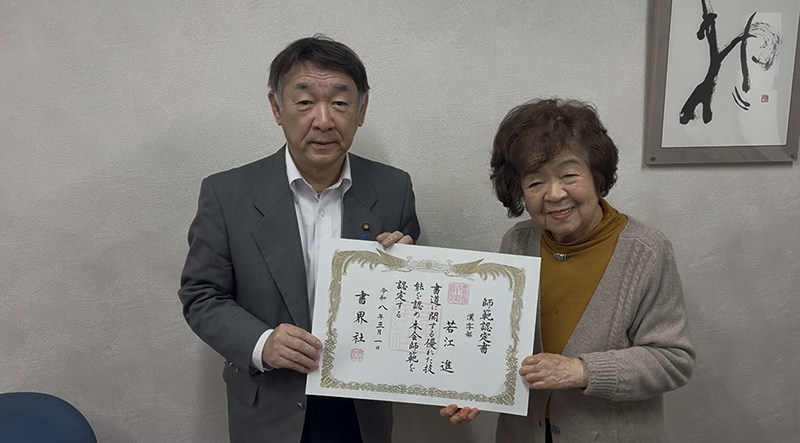 師範認定書
漢字部
若江進
書道に関する優れた技
能を認め本会師範を
認定する
令和八年三月一日
書界社